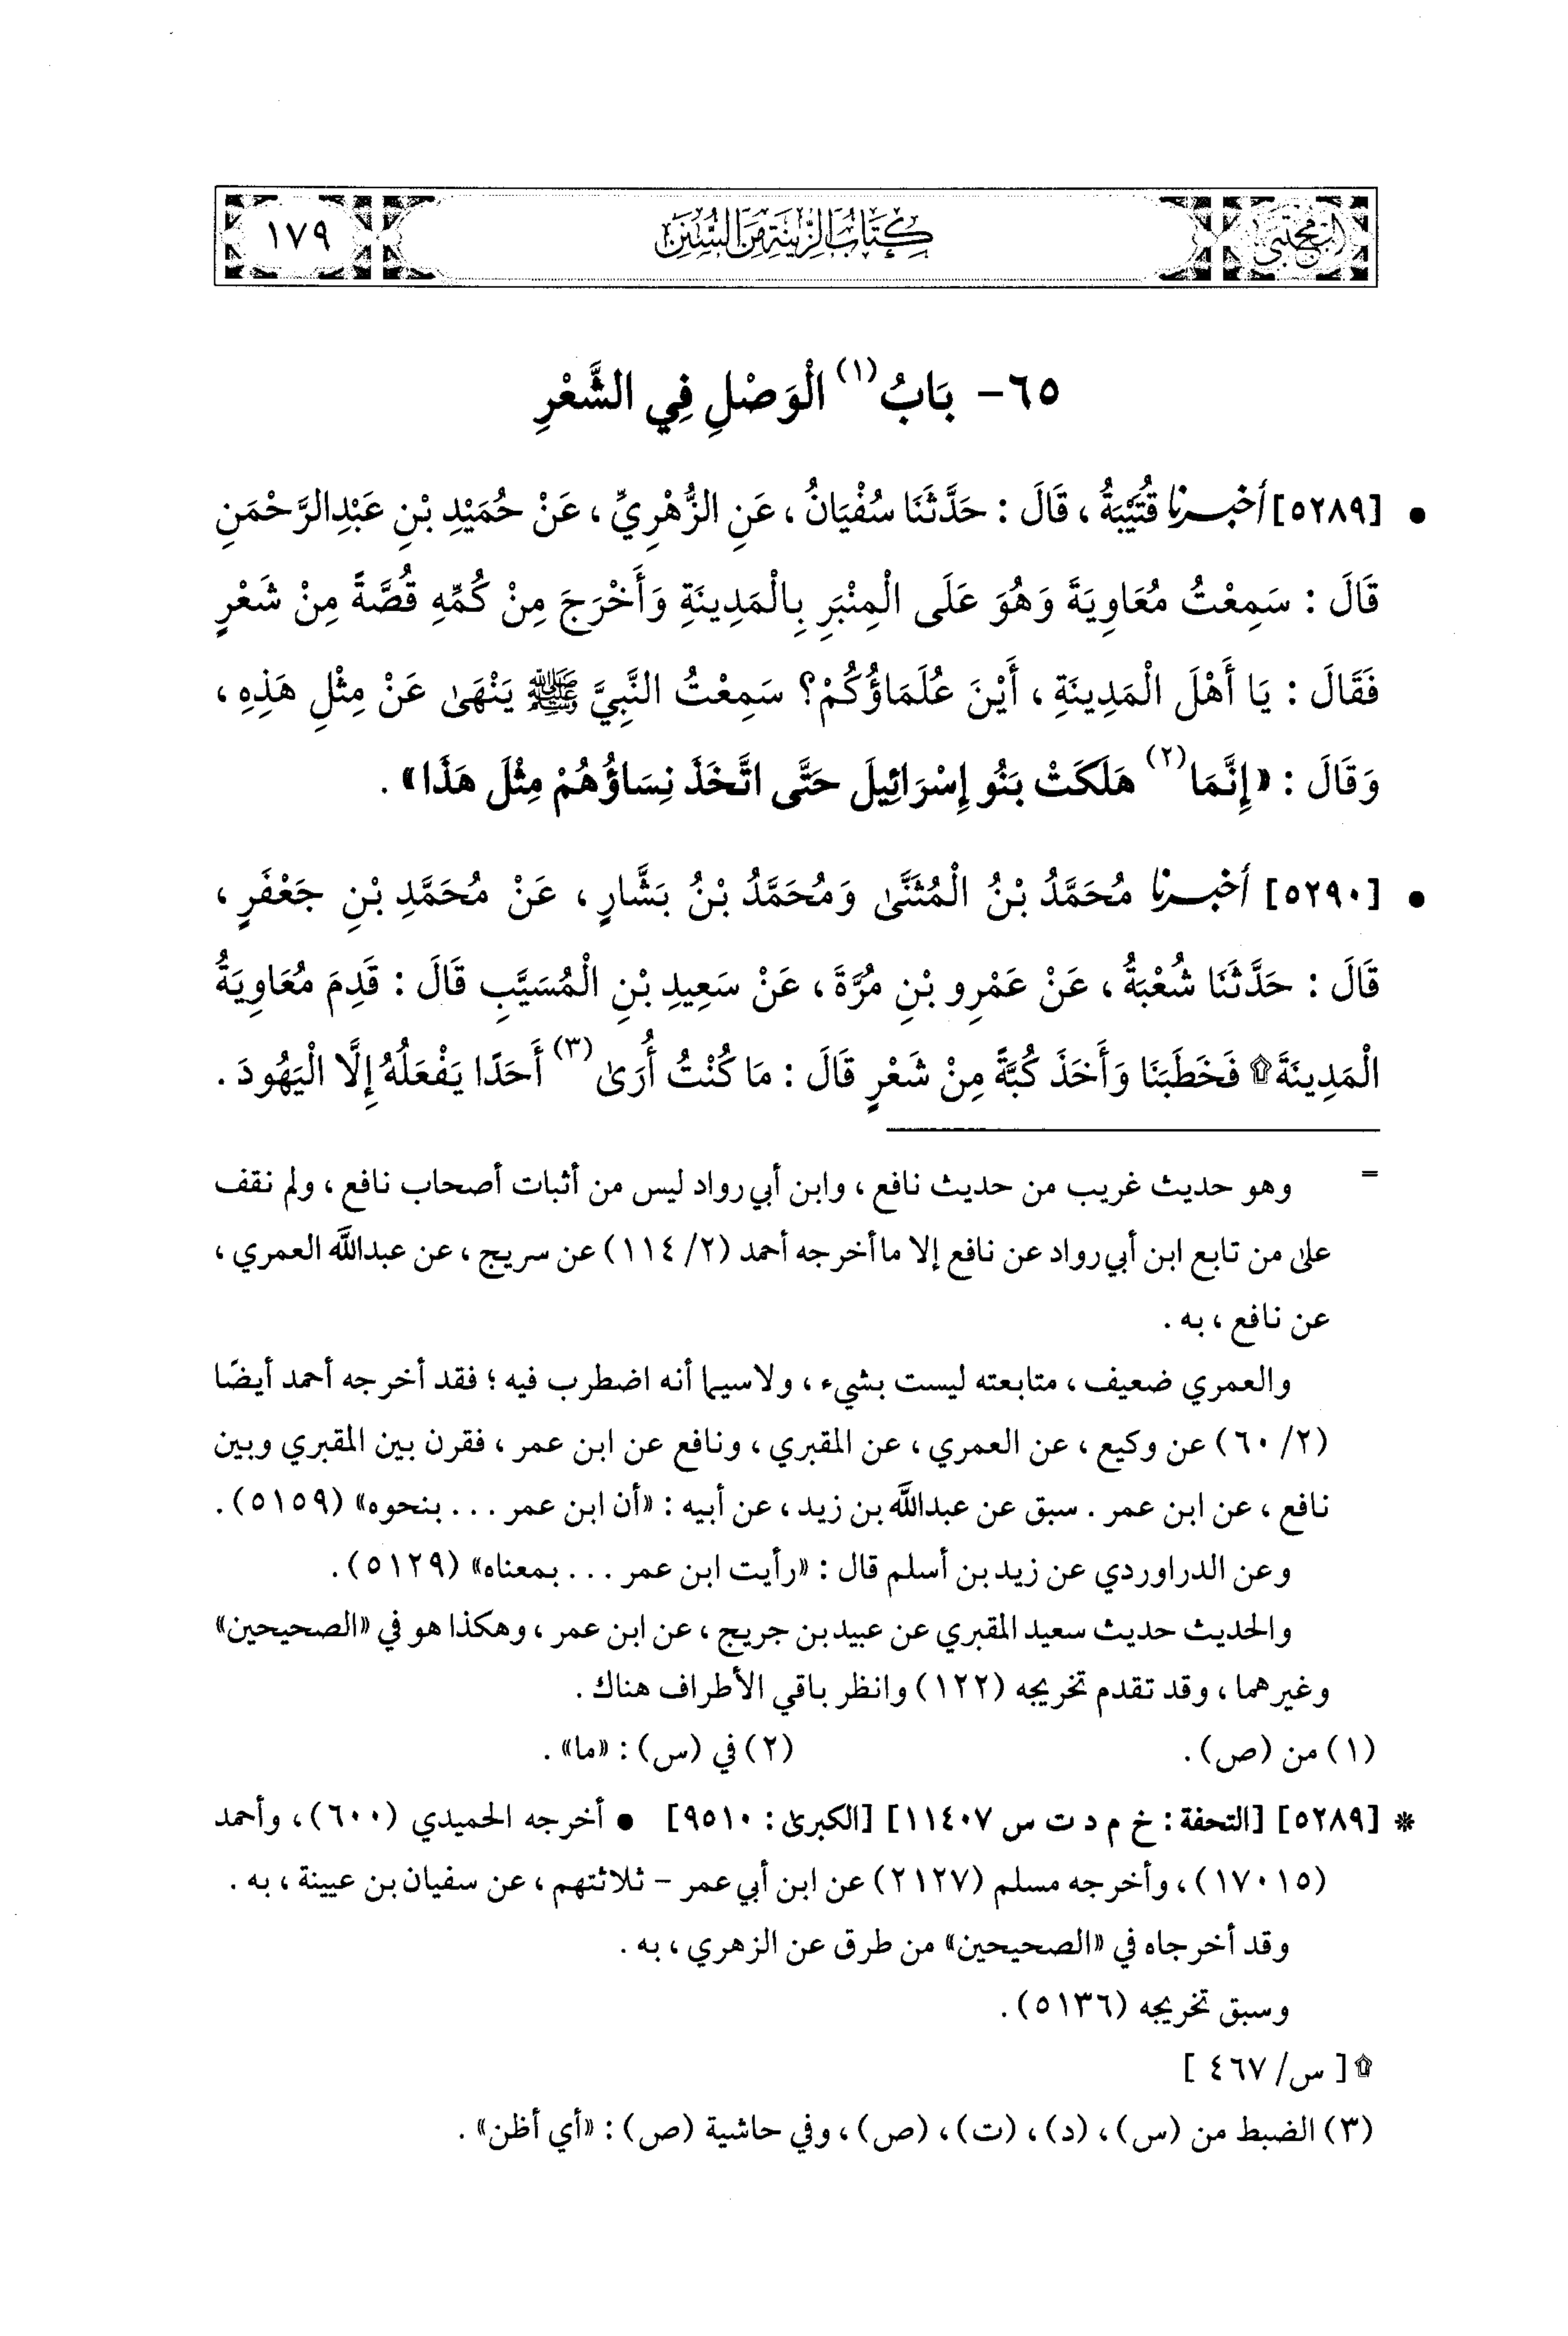 المجتبى كِتَابُ الزِّينَةِ مِنَ السُّنَنِ ١٧٩
٦٥- بَابُ(١) الْوَصْلِ فِي الشَّعْرِ
• [٥٢٨٩] أخبرنا قُتَيْبَةُ، قَالَ: حَدَّثَنَا سُفْيَانُ، عَنِ الزُّهْرِيِّ، عَنْ حُمَيْدِ بْنِ عَبْدِالرَّحْمَنِ
قَالَ: سَمِعْتُ مُعَاوِيَةَ وَهُوَ عَلَى الْمِنْبَرِ بِالْمَدِينَةِ وَأَخْرَجَ مِنْ كُمِّهِ قُصَّةً مِنْ شَعْرٍ
فَقَالَ: يَا أَهْلَ الْمَدِينَةِ، أَيْنَ عُلَمَاؤُكُمْ؟ سَمِعْتُ النَّبِيَّ ﷺ يَنْهَىٰ عَنْ مِثْلِ هَذِهِ،
وَقَالَ: «إِنَّمَا(٢) هَلَكَتْ بَنُو إِسْرَائِيلَ حَتَّى اتَّخَذَ نِسَاؤُهُمْ مِثْلَ هَذَا».
• [٥٢٩٠] أخبرنا مُحَمَّدُ بْنُ الْمُثَنَّىٰ وَمُحَمَّدُ بْنُ بَشَّارٍ، عَنْ مُحَمَّدِ بْنِ جَعْفَرٍ،
قَالَ: حَدَّثَنَا شُعْبَةُ، عَنْ عَمْرِو بْنِ مُرَّةَ، عَنْ سَعِيدِ بْنِ الْمُسَيَّبِ قَالَ: قَدِمَ مُعَاوِيَةُ
الْمَدِينَةَ۩ فَخَطَبَنَا وَأَخَذَ كُبَّةً مِنْ شَعْرٍ قَالَ: مَا كُنْتُ أُرَىٰ(٣) أَحَدًا يَفْعَلُهُ إِلَّا الْيَهُودَ.
= وهو حديث غريب من حديث نافع، وابن أبي رواد ليس من أثبات أصحاب نافع، ولم نقف
على من تابع ابن أبي رواد عن نافع إلا ما أخرجه أحمد (٢/ ١١٤) عن سريج، عن عبدالله العمري،
عن نافع، به.
والعمري ضعيف، متابعته ليست بشيء، ولاسيما أنه اضطرب فيه؛ فقد أخرجه أحمد أيضًا
(٢/ ٦٠) عن وكيع، عن العمري، عن المقبري، ونافع عن ابن عمر، فقرن بين المقبري وبين
نافع، عن ابن عمر. سبق عن عبدالله بن زيد، عن أبيه: «أن ابن عمر... بنحوه» (٥١٥٩).
وعن الدراوردي عن زيد بن أسلم قال: «رأيت ابن عمر... بمعناه» (٥١٢٩).
والحديث حديث سعيد المقبري عن عبيد بن جريج، عن ابن عمر، وهكذا هو في «الصحيحين»
وغيرهما، وقد تقدم تخريجه (١٢٢) وانظر باقي الأطراف هناك.
(١) من (ص). (٢) في (س): «ما».
* [٥٢٨٩] [التحفة: خ م د ت س ١١٤٠٧] [الكبرى: ٩٥١٠] • أخرجه الحميدي (٦٠٠)، وأحمد
(١٧٠١٥)، وأخرجه مسلم (٢١٢٧) عن ابن أبي عمر - ثلاثتهم، عن سفيان بن عيينة، به.
وقد أخرجاه في «الصحيحين» من طرق عن الزهري، به.
وسبق تخريجه (٥١٣٦).
۩[ س/ ٤٦٧ ]
(٣) الضبط من (س)، (د)، (ت)، (ص)، وفي حاشية (ص): «أي أظن».